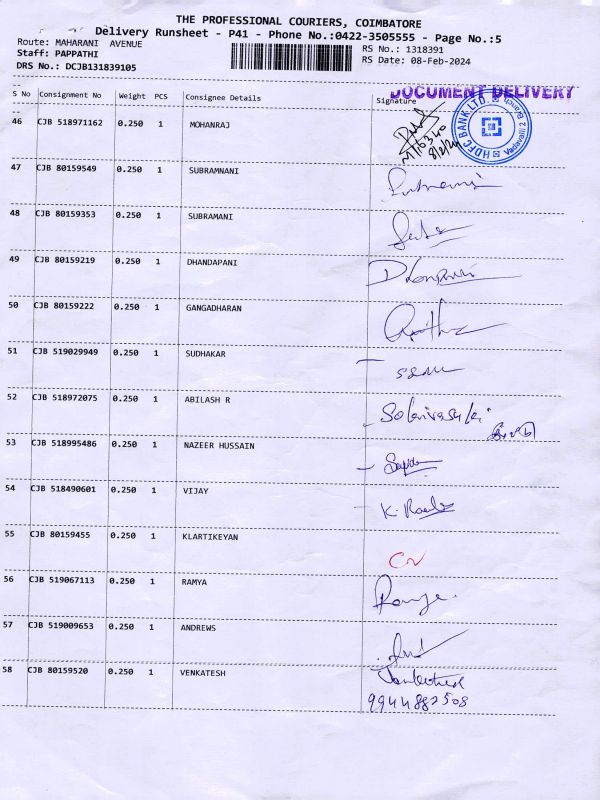 THE PROFESSIONAL COURIERS, COIMBATORE
Delivery Runsheet - P41 - Phone No.:0422-3505555 - Page No.:5
Route: MAHARANI AVENUE
Staff: PAPPATHI
DRS No.: DCJB131839105
RS No.: 1318391
RS Date: 08-Feb-2024
DOCUMENT DELIVERY
S No Consignment No Weight PCS Consignee Details Signature
46 CJB 518971162 0.250 1 MOHANRAJ
8/2/24
HDFC BANK LTD. Vadavalli 2 Branch
47 CJB 80159549 0.250 1 SUBRAMNANI
48 CJB 80159353 0.250 1 SUBRAMANI
49 CJB 80159219 0.250 1 DHANDAPANI
50 CJB 80159222 0.250 1 GANGADHARAN
51 CJB 519029949 0.250 1 SUDHAKAR
52 CJB 518972075 0.250 1 ABILASH R
53 CJB 518995486 0.250 1 NAZEER HUSSAIN
54 CJB 518490601 0.250 1 VIJAY
55 CJB 80159455 0.250 1 KLARTIKEYAN
56 CJB 519067113 0.250 1 RAMYA
57 CJB 519009653 0.250 1 ANDREWS
58 CJB 80159520 0.250 1 VENKATESH
9944882508